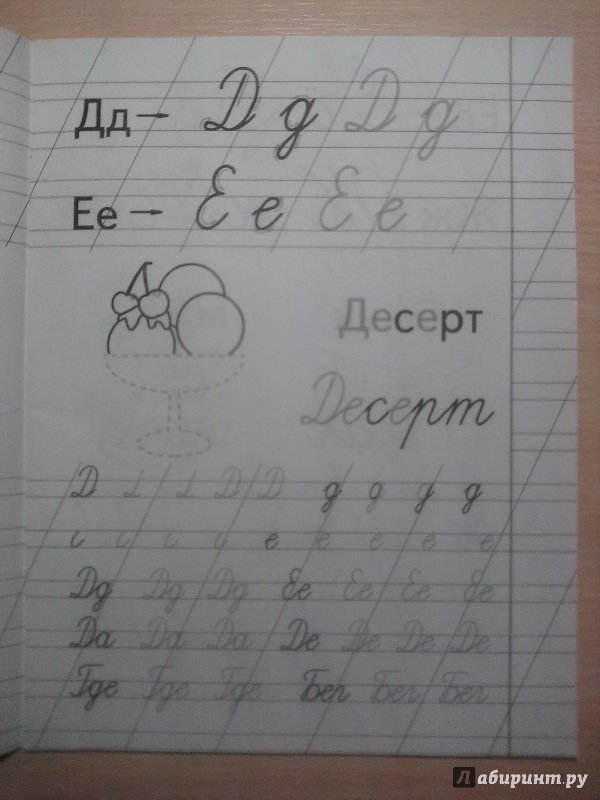 Дд → Д д Д д
Ее → Е е Е е
Десерт
Десерт
Д Д Д д д д д
е е е е е
Дд Дд Дд Ее Ее Ее Ее
Да Да Да Де Де Де Де
Где Где Где Бег Бег Бег
Лабиринт.ру